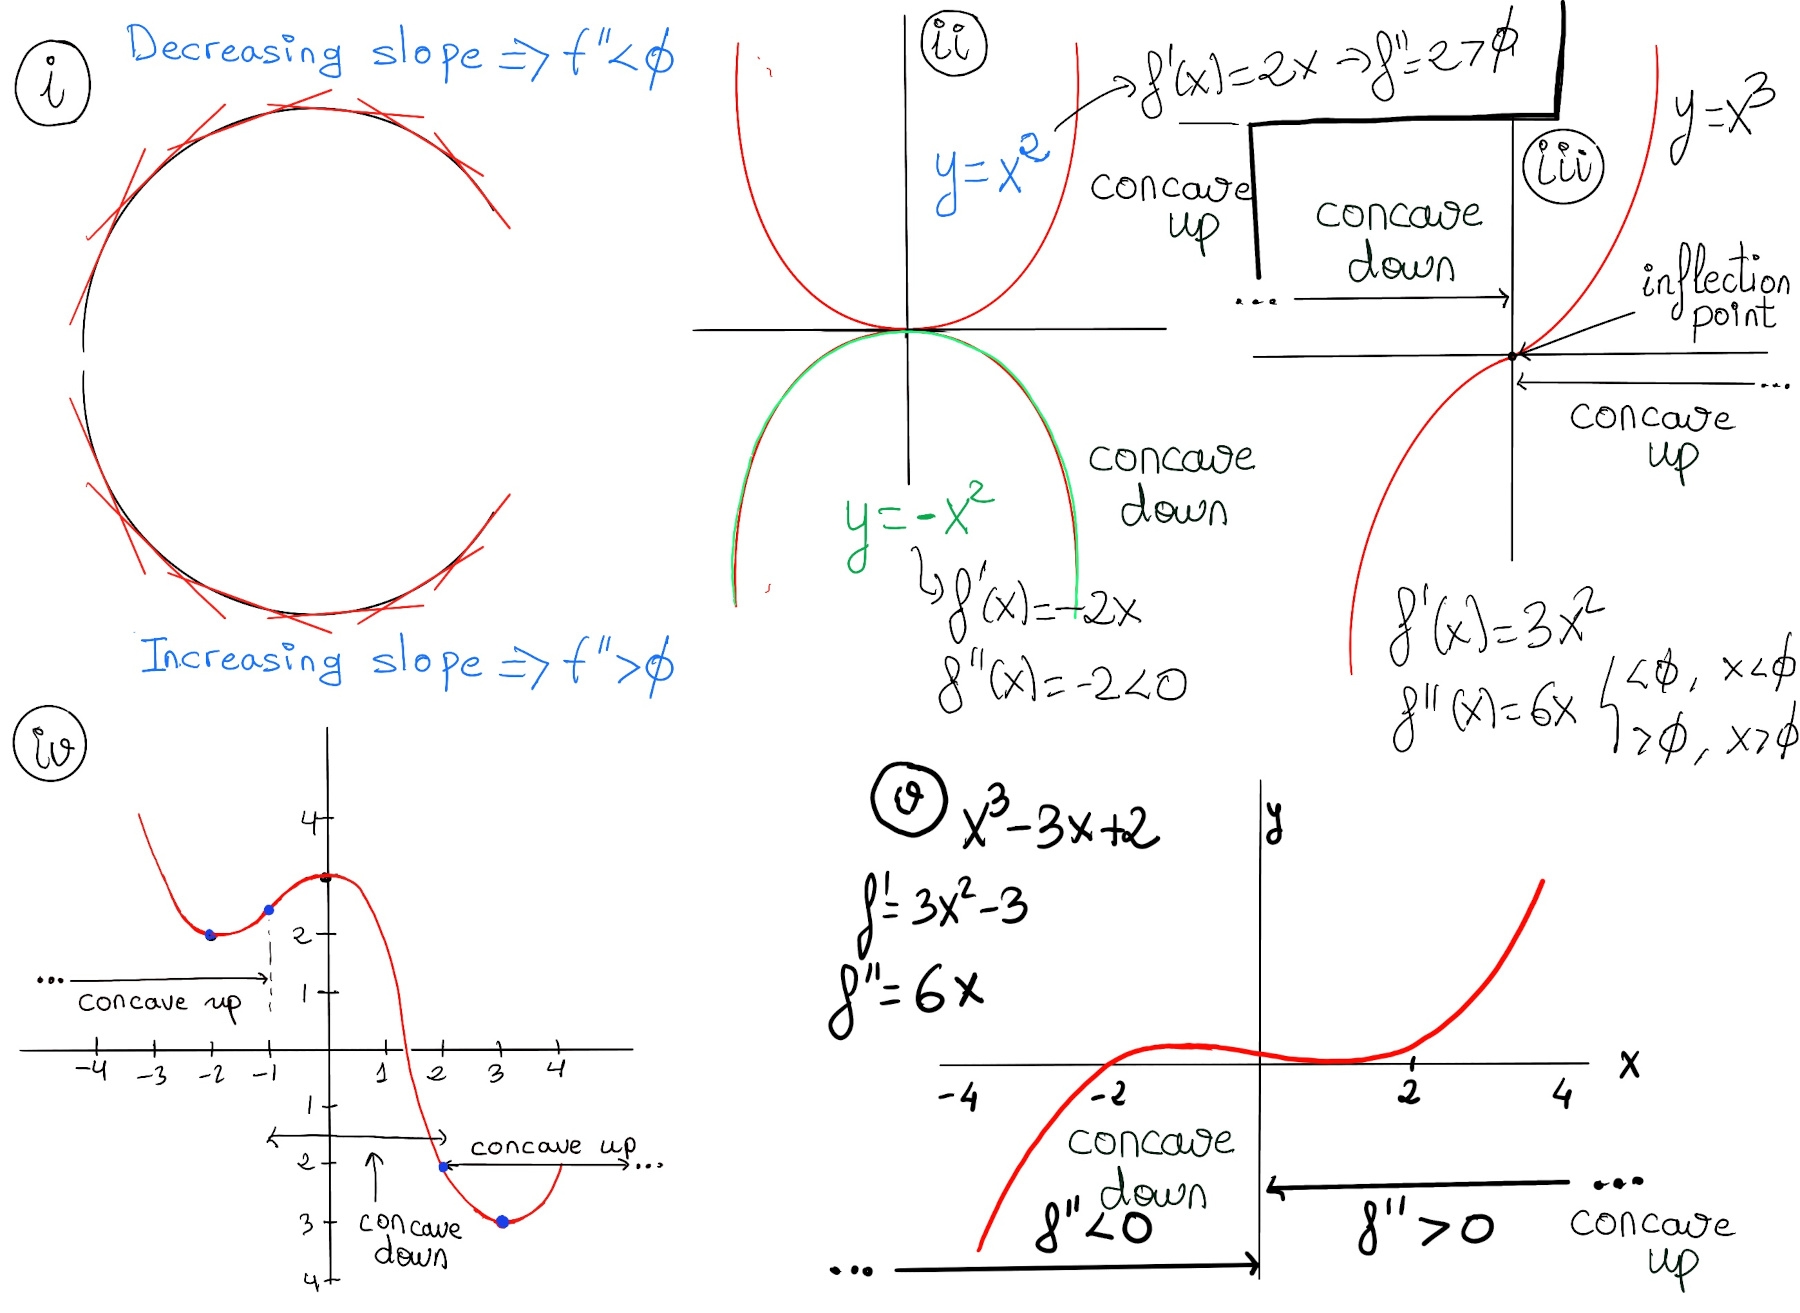 i
Decreasing slope => f''<ϕ
Increasing slope => f''>ϕ
ii
f'(x)=2x → f''=2>ϕ
y=x²
concave
up
concave
down
y=-x²
f'(x)=-2x
f''(x)=-2<0
iii
y=x³
concave
down
...
inflection
point
...
concave
up
f'(x)=3x²
f''(x)=6x { <ϕ, x<ϕ
>ϕ, x>ϕ
iv
4
2
1
... concave up
-4 -3 -2 -1 1 2 3 4
1
2
3
4
concave up ...
concave
down
v
x³-3x+2
f'=3x²-3
f''=6x
y
x
-4 -2 2 4
concave
down
f''<0
...
...
f''>0
concave
up